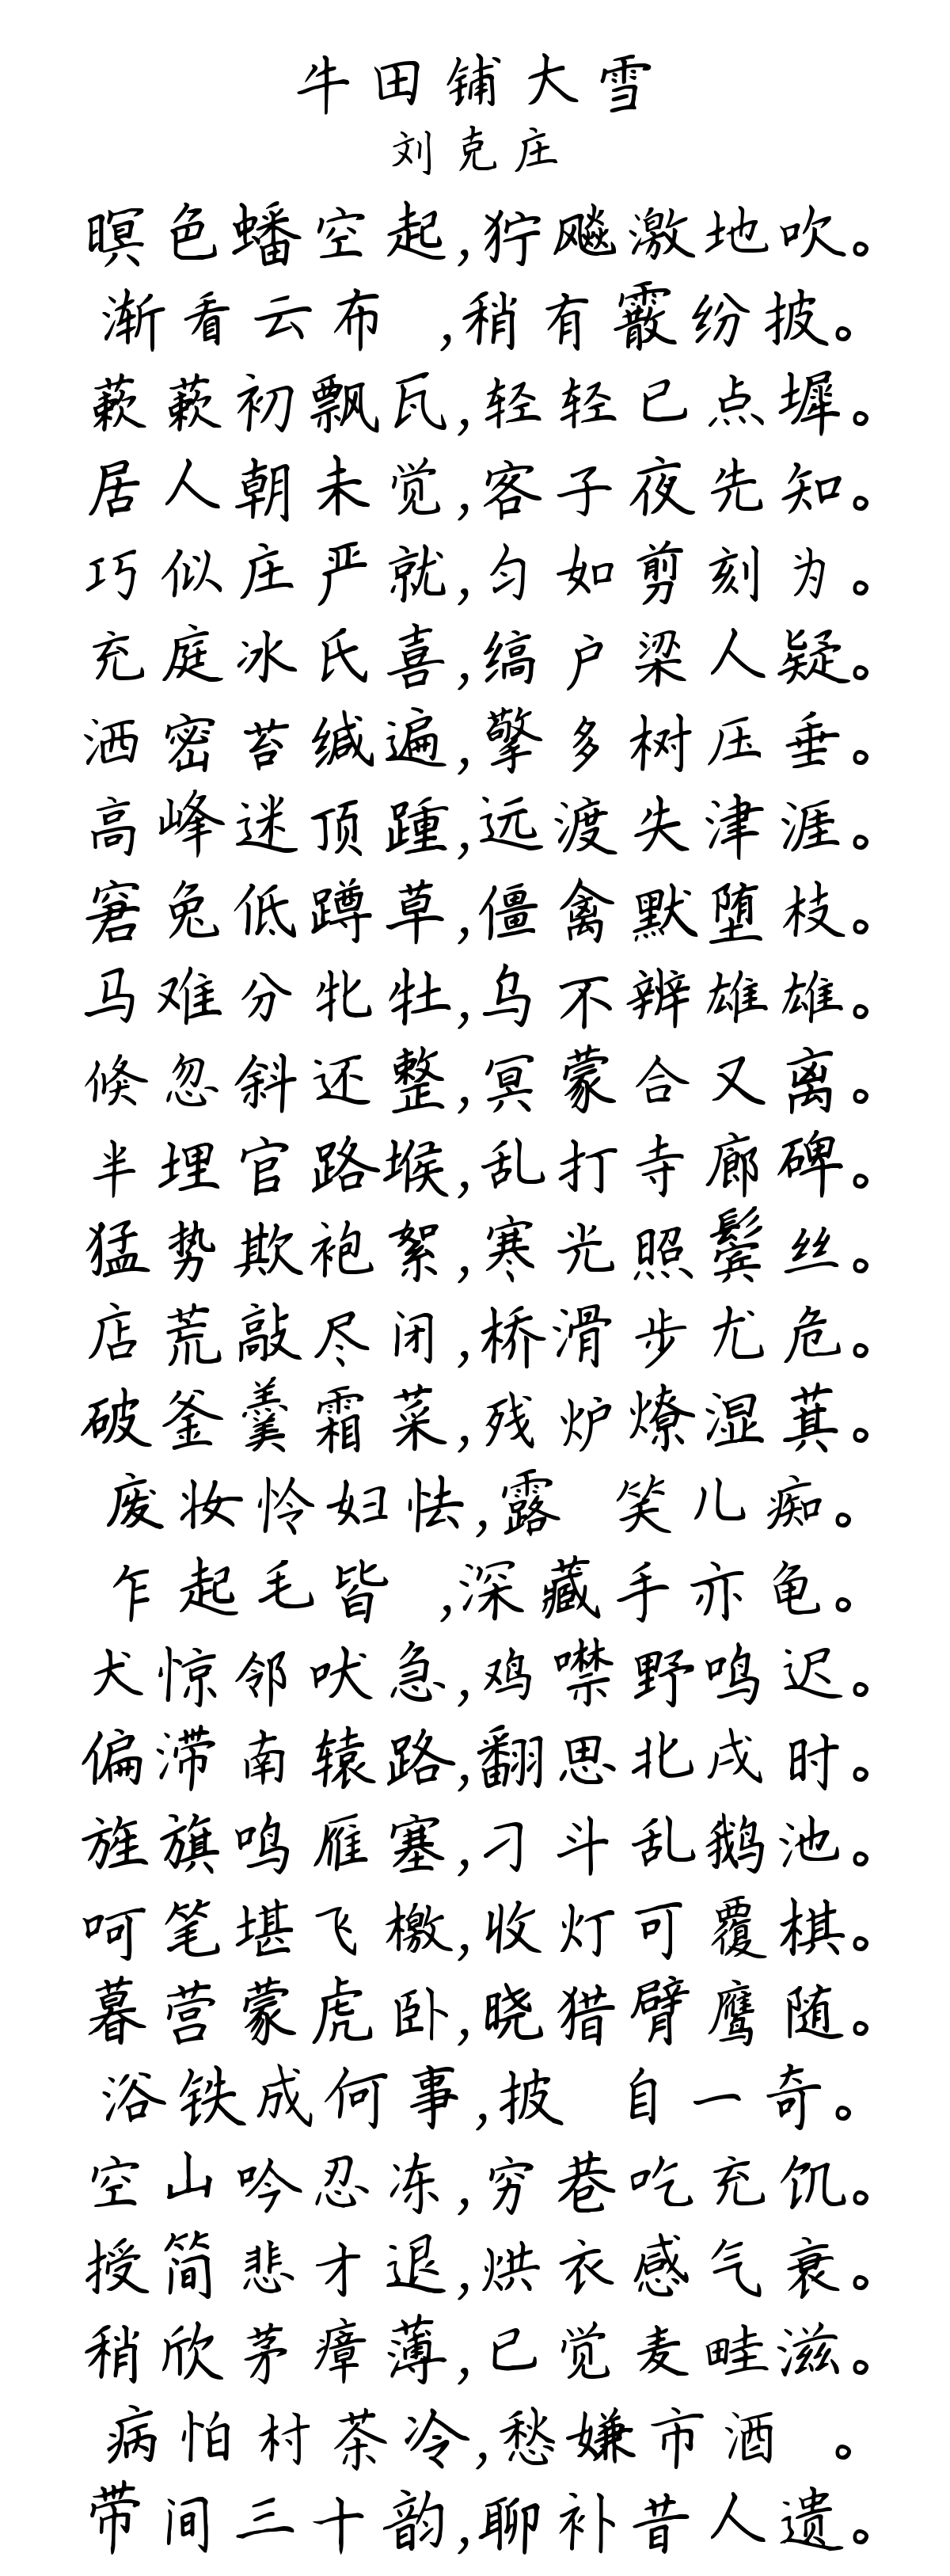 牛田铺大雪
刘克庄
暝色蟠空起,狞飚激地吹。
渐看云布 ,稍有霰纷披。
蔌蔌初飘瓦,轻轻已点墀。
居人朝未觉,客子夜先知。
巧似庄严就,匀如剪刻为。
充庭冰氏喜,缟户梁人疑。
洒密苔缄遍,擎多树压垂。
高峰迷顶踵,远渡失津涯。
窘兔低蹲草,僵禽默堕枝。
马难分牝牡,乌不辨雄雄。
倏忽斜还整,冥蒙合又离。
半埋官路堠,乱打寺廊碑。
猛势欺袍絮,寒光照鬓丝。
店荒敲尽闭,桥滑步尤危。
破釜羹霜菜,残炉燎湿萁。
废妆怜妇怯,露 笑儿痴。
乍起毛皆 ,深藏手亦龟。
犬惊邻吠急,鸡噤野鸣迟。
偏滞南辕路,翻思北戍时。
旌旗鸣雁塞,刁斗乱鹅池。
呵笔堪飞檄,收灯可覆棋。
暮营蒙虎卧,晓猎臂鹰随。
浴铁成何事,披 自一奇。
空山吟忍冻,穷巷吃充饥。
授简悲才退,烘衣感气衰。
稍欣茅瘴薄,已觉麦畦滋。
病怕村茶冷,愁嫌市酒 。
带间三十韵,聊补昔人遗。